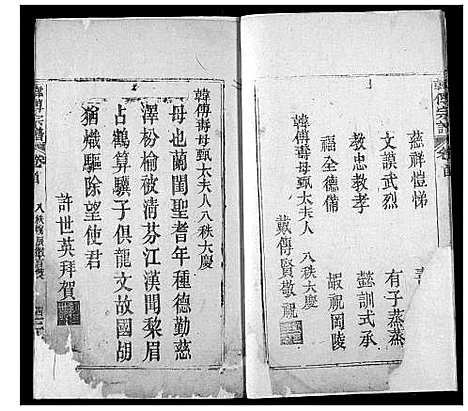 韓傅宗譜 卷首
壽
慈祥愷悌 有子蒸蒸
文謨武烈 懿訓式承
教忠教孝 嘏祝岡陵
福全德備
韓傅壽母甄太夫人 八秩大慶
戴傳賢敬祝
韓傅壽母甄太夫人八秩大慶
母也蘭閨聖耆年種德勤慈
澤枌榆被清芬江漢聞黎眉
占鶴算驥子俱龍文故國胡
猶熾驅除望使君
許世英拜賀
韓傅宗譜 卷首